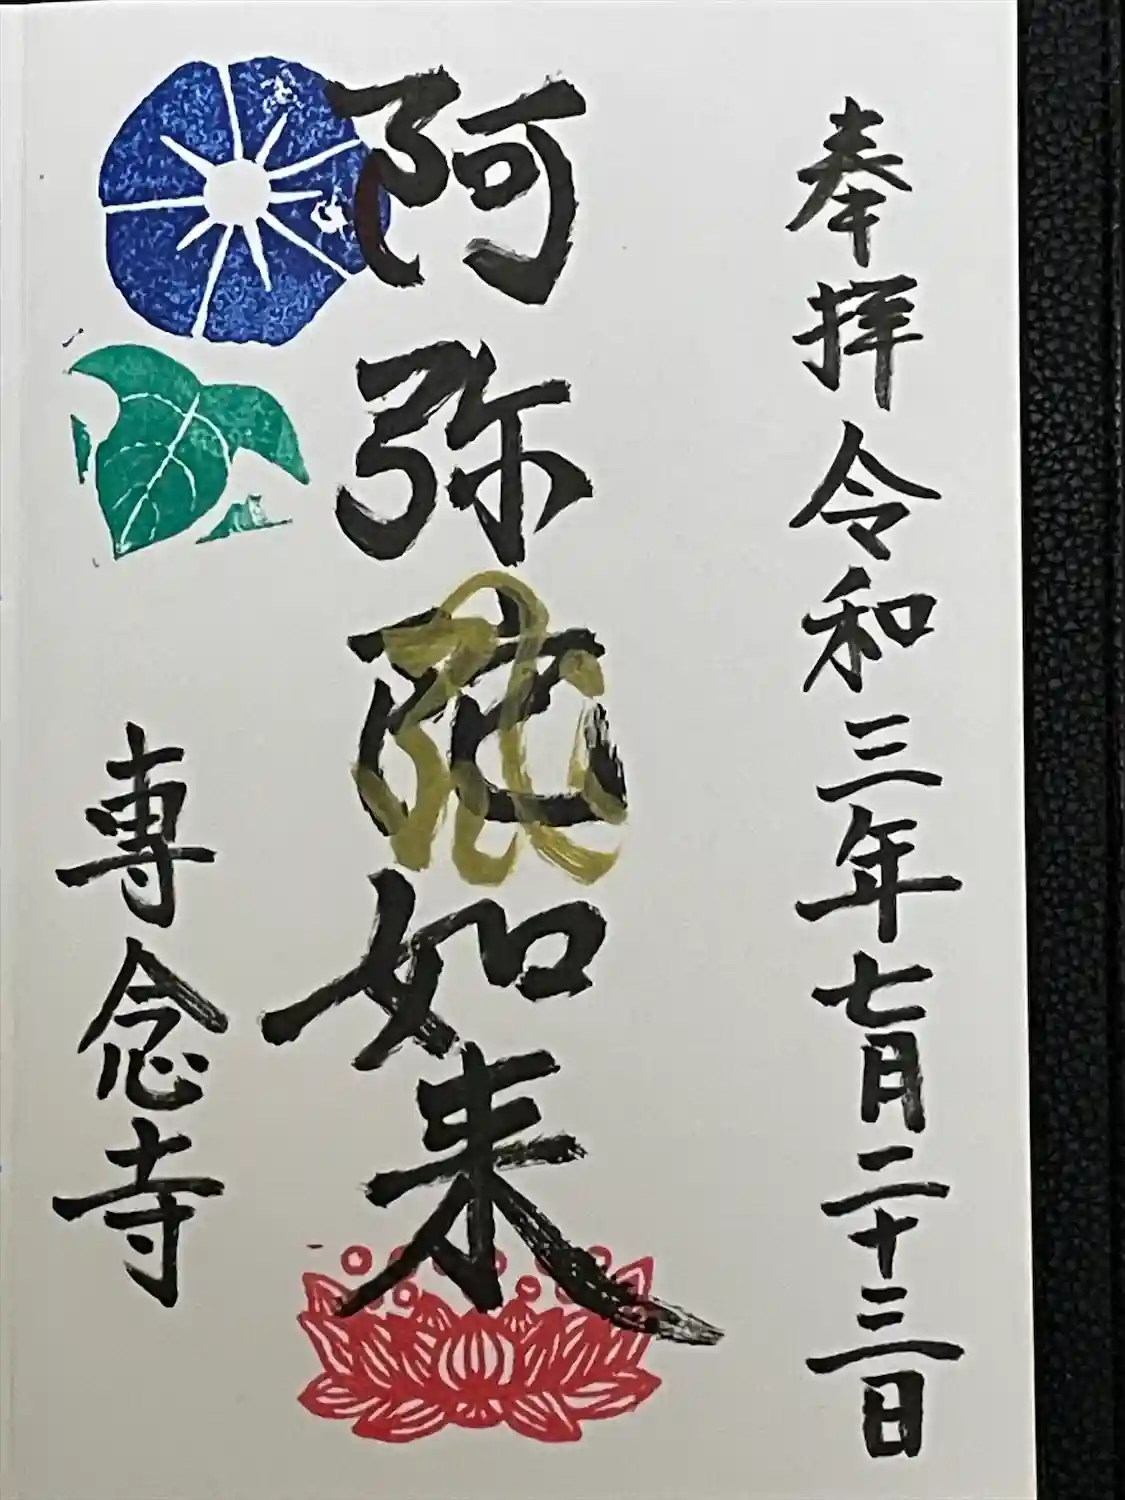 奉拝 令和三年七月二十三日
阿弥陀如来
専念寺